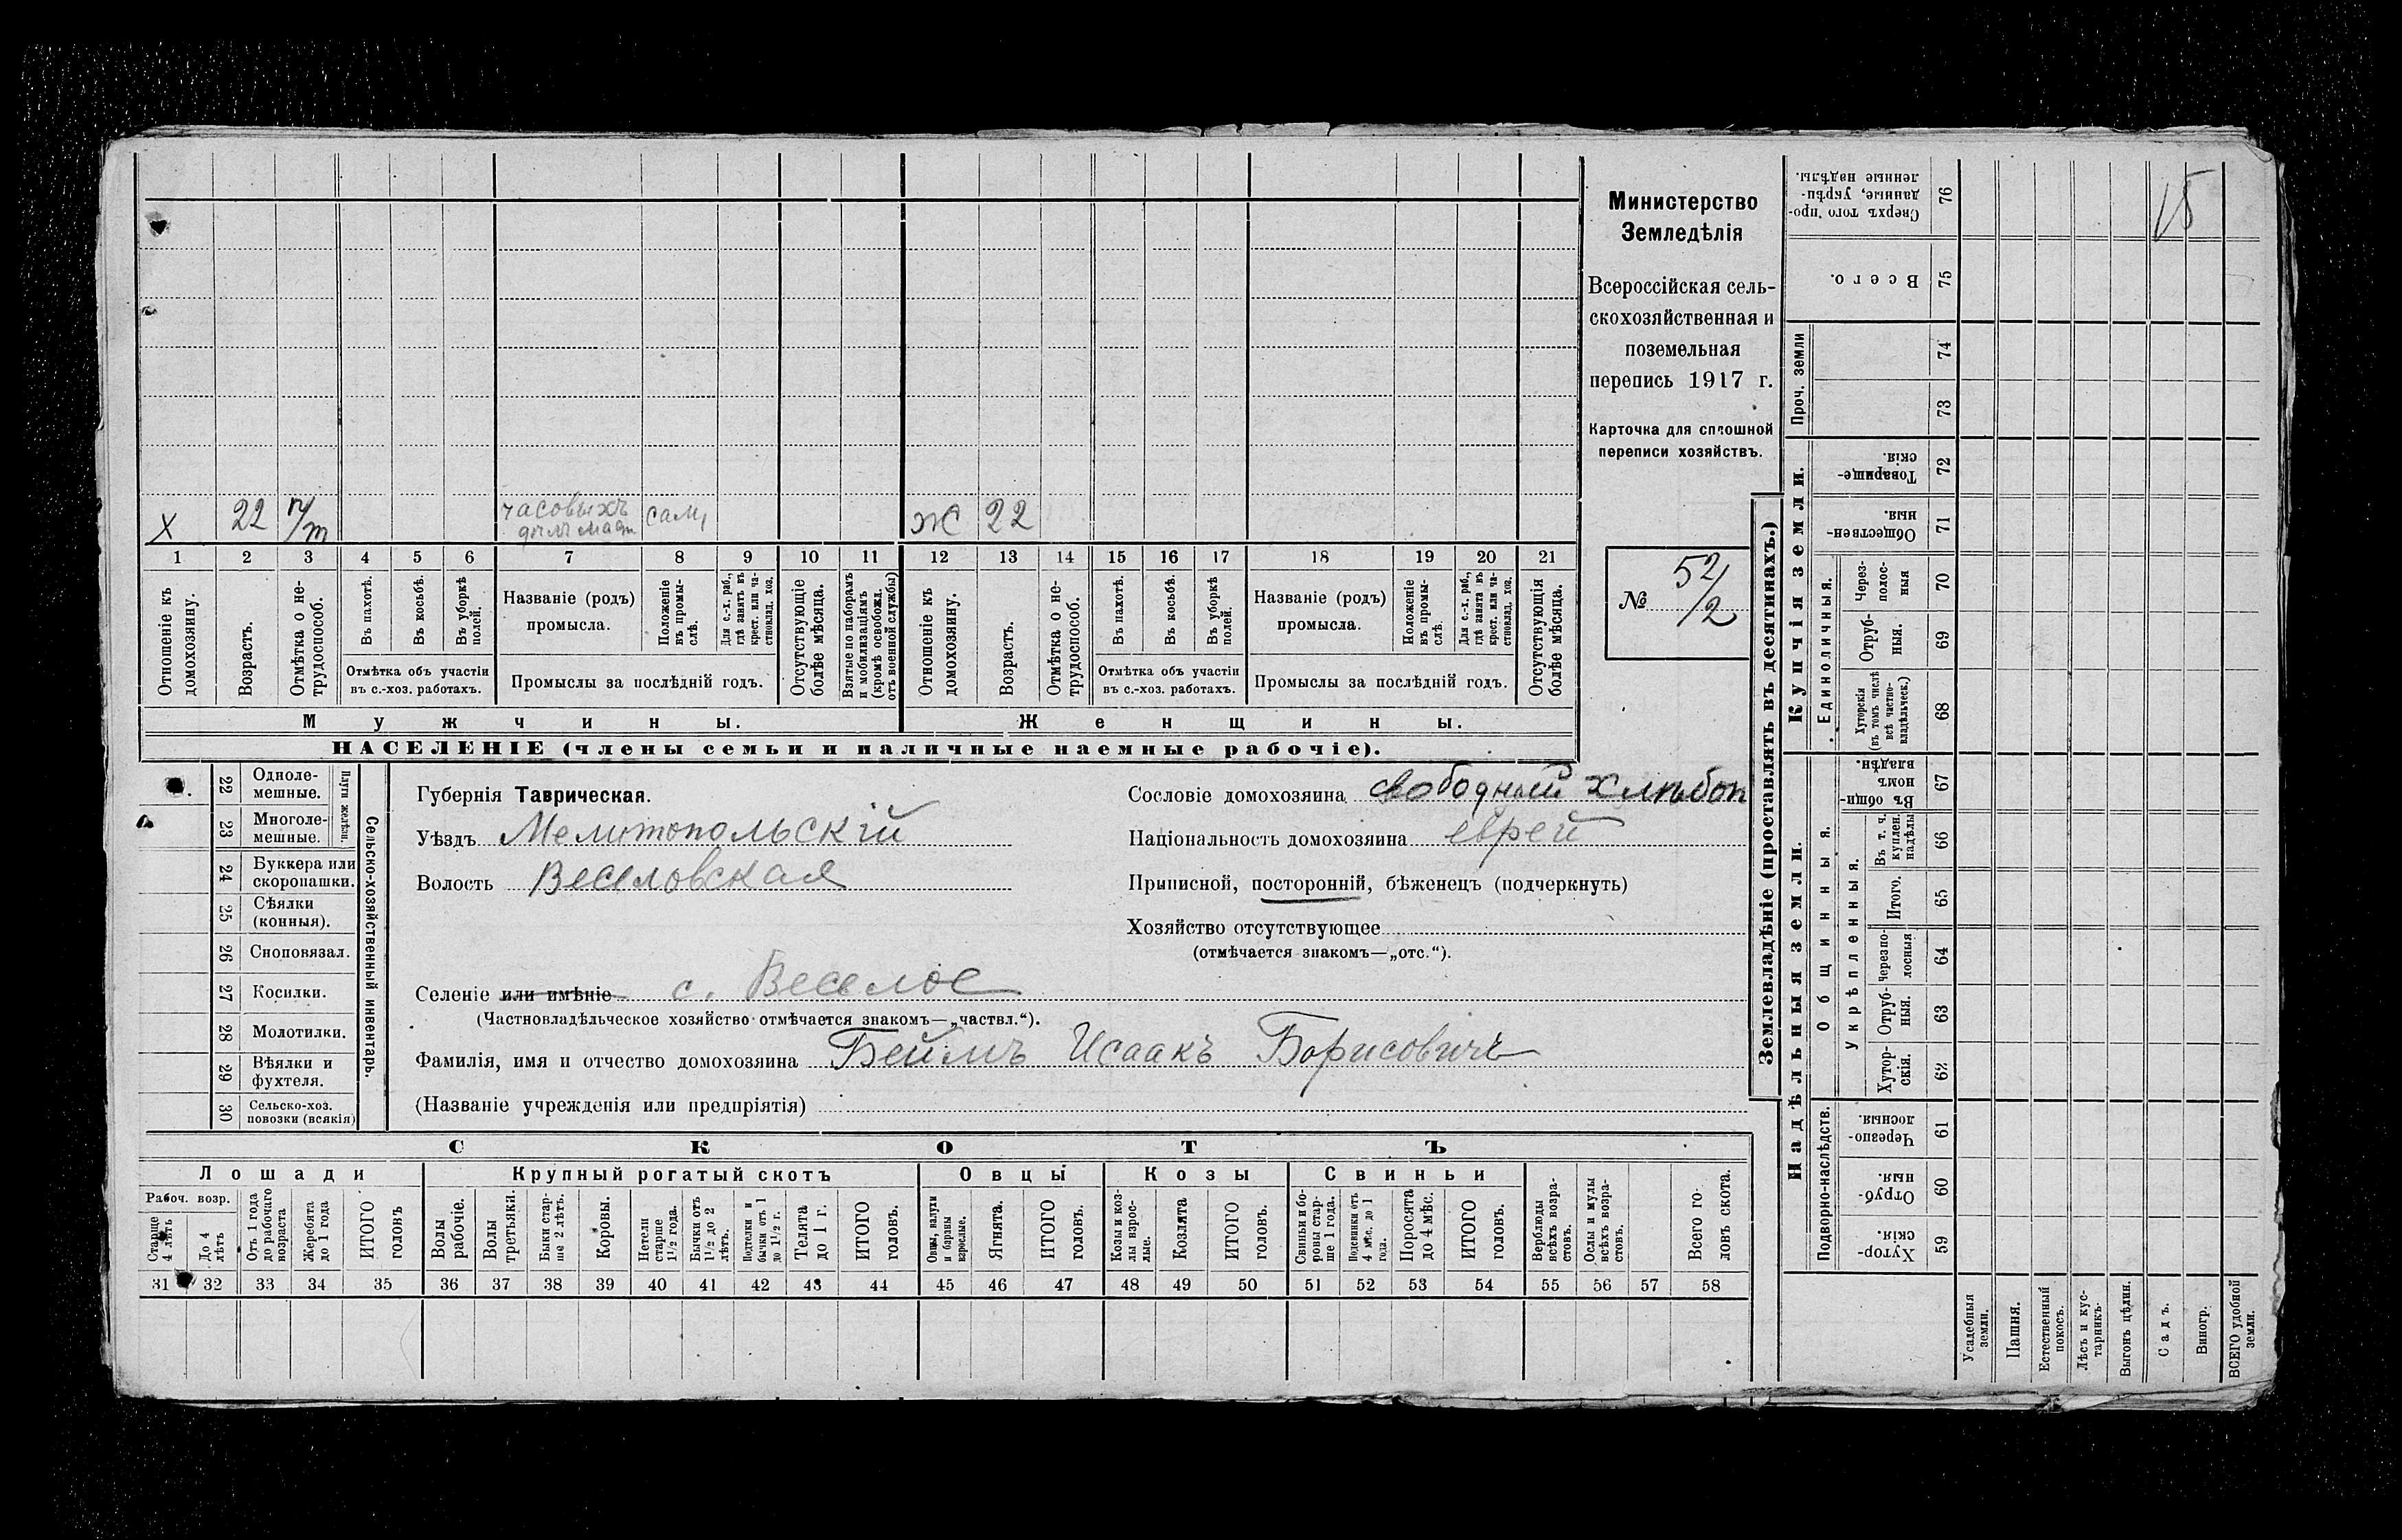 Министерство
Земледѣлія
Всероссійская сель-
скохозяйственная и
поземельная
перепись 1917 г.
Карточка для сплошной
переписи хозяйствъ.
№ 52/2
х 22 н/т часовыхъ сам, Ж 22
дѣлъ маст
1 2 3 4 5 6 7 8 9 10 11 12 13 14 15 16 17 18 19 20 21
Отношеніе къ домохозяину.
Возрастъ.
Отмѣтка о не-трудоспособ.
Въ пахотѣ.
Въ косьбѣ.
Въ уборкѣ полей.
Отмѣтка объ участіи
въ с.-хоз. работахъ.
Названіе (родъ)
промысла.
Положеніе въ промы-слѣ.
Для с.-х. раб., гдѣ занятъ въ крест. или ча-стновлад. хоз.
Промыслы за послѣдній годъ.
Отсутствующіе болѣе мѣсяца.
Взятые по наборамъ и мобилизаціямъ (кромѣ освобожд. отъ военной службы)
Отношеніе къ домохозяину.
Возрастъ.
Отмѣтка о не-трудоспособ.
Въ пахотѣ.
Въ косьбѣ.
Въ уборкѣ полей.
Отмѣтка объ участіи
въ с.-хоз. работахъ.
Названіе (родъ)
промысла.
Положеніе въ промы-слѣ.
Для с.-х. раб., гдѣ занята въ крест. или ча-стновлад. хоз.
Промыслы за послѣдній годъ.
Отсутствующія болѣе мѣсяца.
Мужчины. Женщины.
НАСЕЛЕНІЕ (члены семьи и наличные наемные рабочіе).
Сельско-хозяйственный инвентарь.
Плуги желѣзн.
22 Одноле-
мешные.
23 Многоле-
мешные.
24 Буккера или
скоропашки.
25 Сѣялки
(конныя).
26 Сноповязал.
27 Косилки.
28 Молотилки.
29 Вѣялки и
фухтеля.
30 Сельско-хоз.
повозки (всякія)
Губернія Таврическая.
Уѣздъ Мелитопольскій
Волость Веселовская
Сословіе домохозяина свободный хлѣбоп
Національность домохозяина еврей
Приписной, посторонній, бѣженецъ (подчеркнуть)
Хозяйство отсутствующее
(отмѣчается знакомъ—„отс.“).
Селеніе или имѣніе с. Веселое
(Частновладѣльческое хозяйство отмѣчается знакомъ—„частвл.“).
Фамилія, имя и отчество домохозяина Беймъ Исаакъ Борисовичъ
(Названіе учрежденія или предпріятія)
СКОТЪ
Лошади Крупный рогатый скотъ Овцы Козы Свиньи
Рабоч. возр.
Старше 4 лѣтъ
До 4 лѣтъ
Отъ 1 года до рабочаго возраста
Жеребята до 1 года
ИТОГО головъ
Волы рабочіе.
Волы третьяки.
Быки стар-ше 2 лѣтъ.
Коровы.
Нетели старше 1½ года.
Бычки отъ 1½ до 2 лѣтъ.
Подтелки и бычки отъ 1 до 1½ г.
Телята до 1 г.
ИТОГО головъ.
Овцы, валухи и бараны взрослые.
Ягнята.
ИТОГО головъ.
Козы и коз-лы взрос-лые.
Козлята
ИТОГО головъ.
Свиньи и бо-ровы стар-ше 1 года.
Подсвинки отъ 4 мѣс. до 1 года.
Поросята до 4 мѣс.
ИТОГО головъ.
Верблюды всѣхъ возра-стовъ.
Ослы и мулы всѣхъ возра-стовъ.
Всего го-ловъ скота.
31 32 33 34 35 36 37 38 39 40 41 42 43 44 45 46 47 48 49 50 51 52 53 54 55 56 57 58
Землевладѣніе (проставлять въ десятинахъ.)
15
Сверхъ того про-данные, укрѣп-ленные надѣлы. 76
Всего. 75
Проч. земли
74
73
Купчія земли.
Товарище-скія. 72
Обществен-ныя. 71
Единоличныя.
Через-полос-ныя 70
Отруб-ныя. 69
Хуторскія (въ томъ числѣ всѣ частно-владѣльческ.) 68
Надѣльныя земли.
Общинныя.
Въ общи-номъ владѣн. 67
Укрѣпленныя.
Въ т. ч. куплен. надѣлы 66
Итого. 65
Черезпо-лосныя 64
Отруб-ныя. 63
Хутор-скія. 62
Подворно-наслѣдств.
Черезпо-лосныя 61
Отруб-ныя. 60
Хутор-скія. 59
Усадебныя земли.
Пашня.
Естественный покосъ.
Лѣсъ и кус-тарникъ.
Выгонъ цѣлин.
Садъ.
Виногр.
ВСЕГО удобной земли.